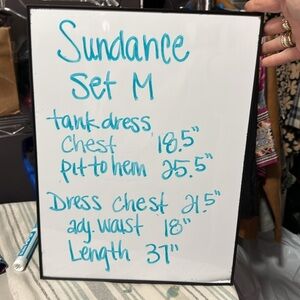 Sundance
Set M
tank dress
Chest 18.5"
pit to hem 25.5"
Dress Chest 21.5"
adj. waist 18"
Length 37"